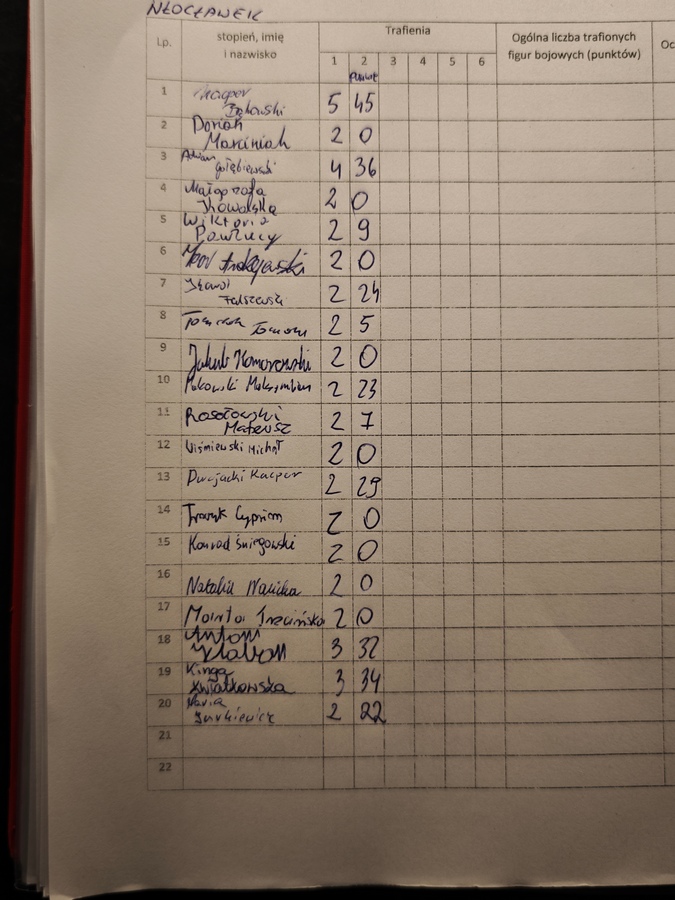 WŁOCŁAWEK
Lp. stopień, imię i nazwisko Trafienia Ogólna liczba trafionych figur bojowych (punktów) Oc
1 2 3 4 5 6
1 Kacper 5 45
2 Dorian Marciniak 2 0
3 Adrian Gołębiewski 4 36
4 Małgorzata Kowalska 2 0
5 Wiktoria 2 9
6 2 0
7 2 24
8 2 5
9 Jakub Komorowski 2 0
10 Makowski Maksymilian 2 23
11 Rosołowski Mateusz 2 7
12 Wiśniewski Michał 2 0
13 Kacper 2 29
14 Cyprian 2 0
15 Konrad Śniegowski 2 0
16 Natalia 2 0
17 Marta Trzcińska 2 0
18 Antoni 3 32
19 Kinga Kwiatkowska 3 34
20 Maria Jurkiewicz 2 22
21
22